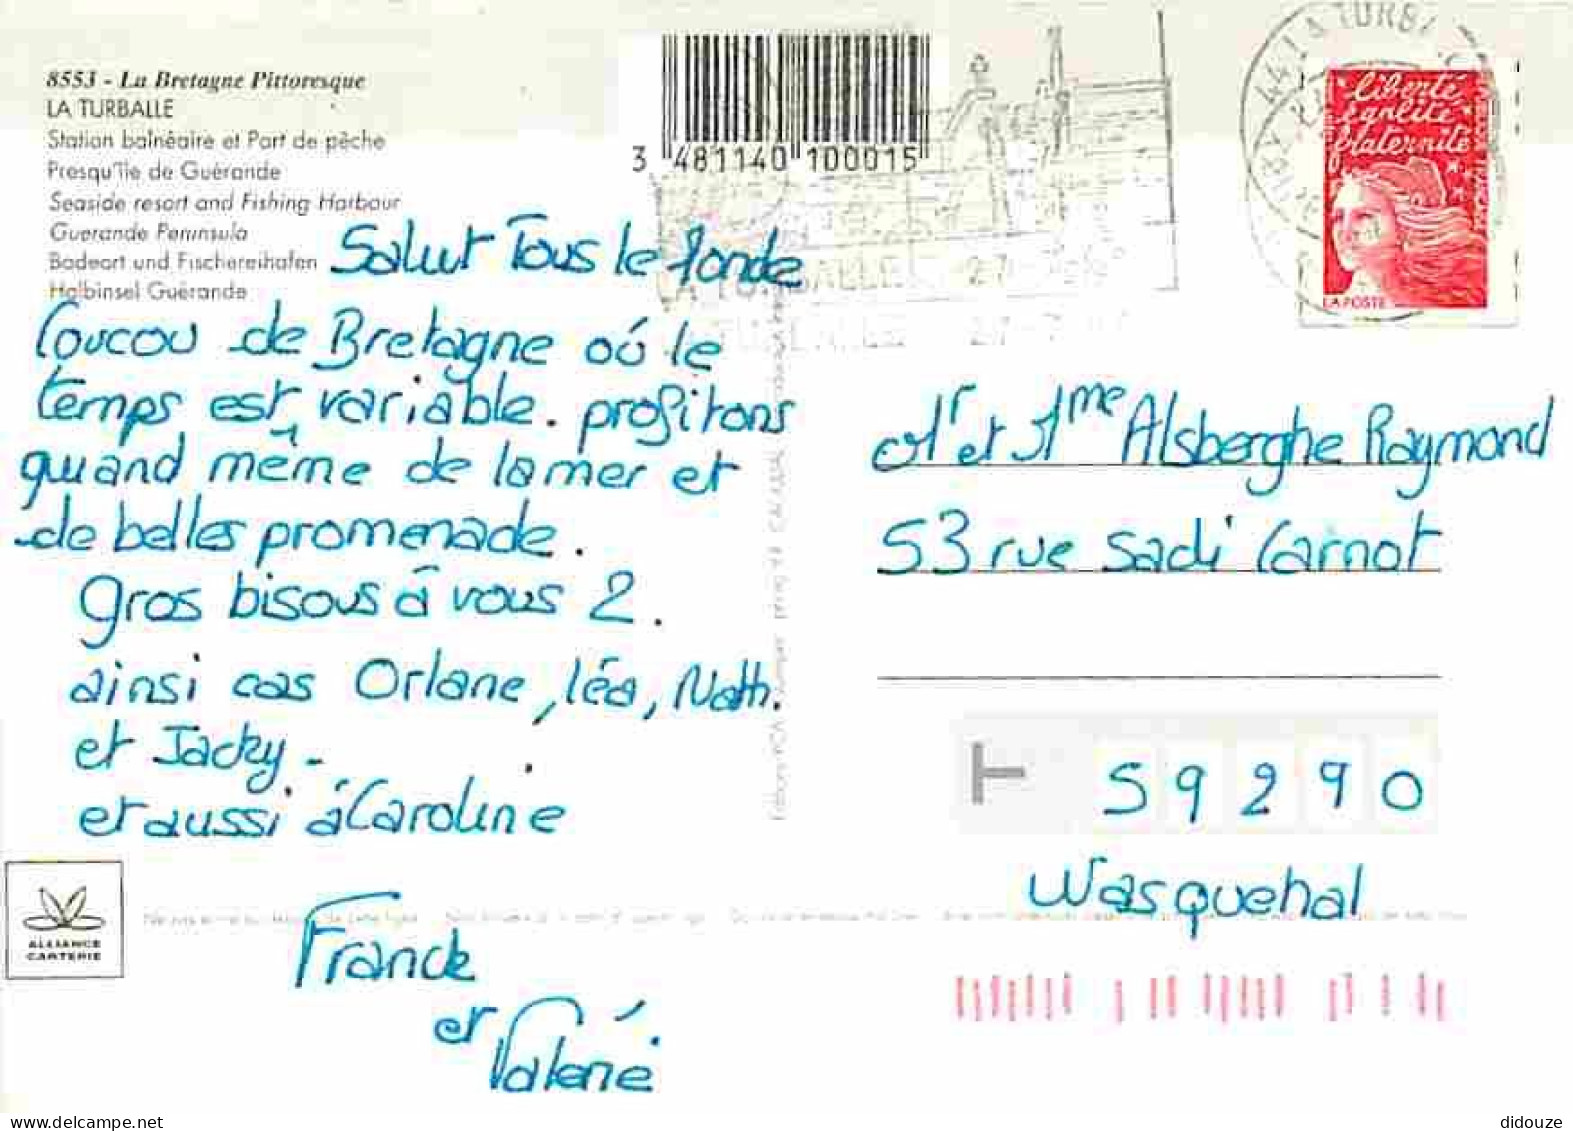 8553 - La Bretagne Pittoresque
LA TURBALLE
Station balnéaire et Port de pêche
Presqu'île de Guérande
Seaside resort and Fishing Harbour
Guerande Peninsula
Badeort und Fischereihafen
Halbinsel Guérande
3 481140 100015
44 LA TURBALLE
liberté
égalité
fraternité
LA POSTE
Salut Tous le Monde
Coucou de Bretagne où le
temps est variable. profitons
quand même de la mer et
de belles promenade.
gros bisous à vous 2.
ainsi cas Orlane, léa, Nath.
et Jacky -
et aussi à Caroline
Franck
et
Valérie
Mr et Mme Alsberghe Raymond
53 rue Sadi Carnot
59290
Wasquehal
ALLIANCE
CARTERIE
delcampe.net
didouze